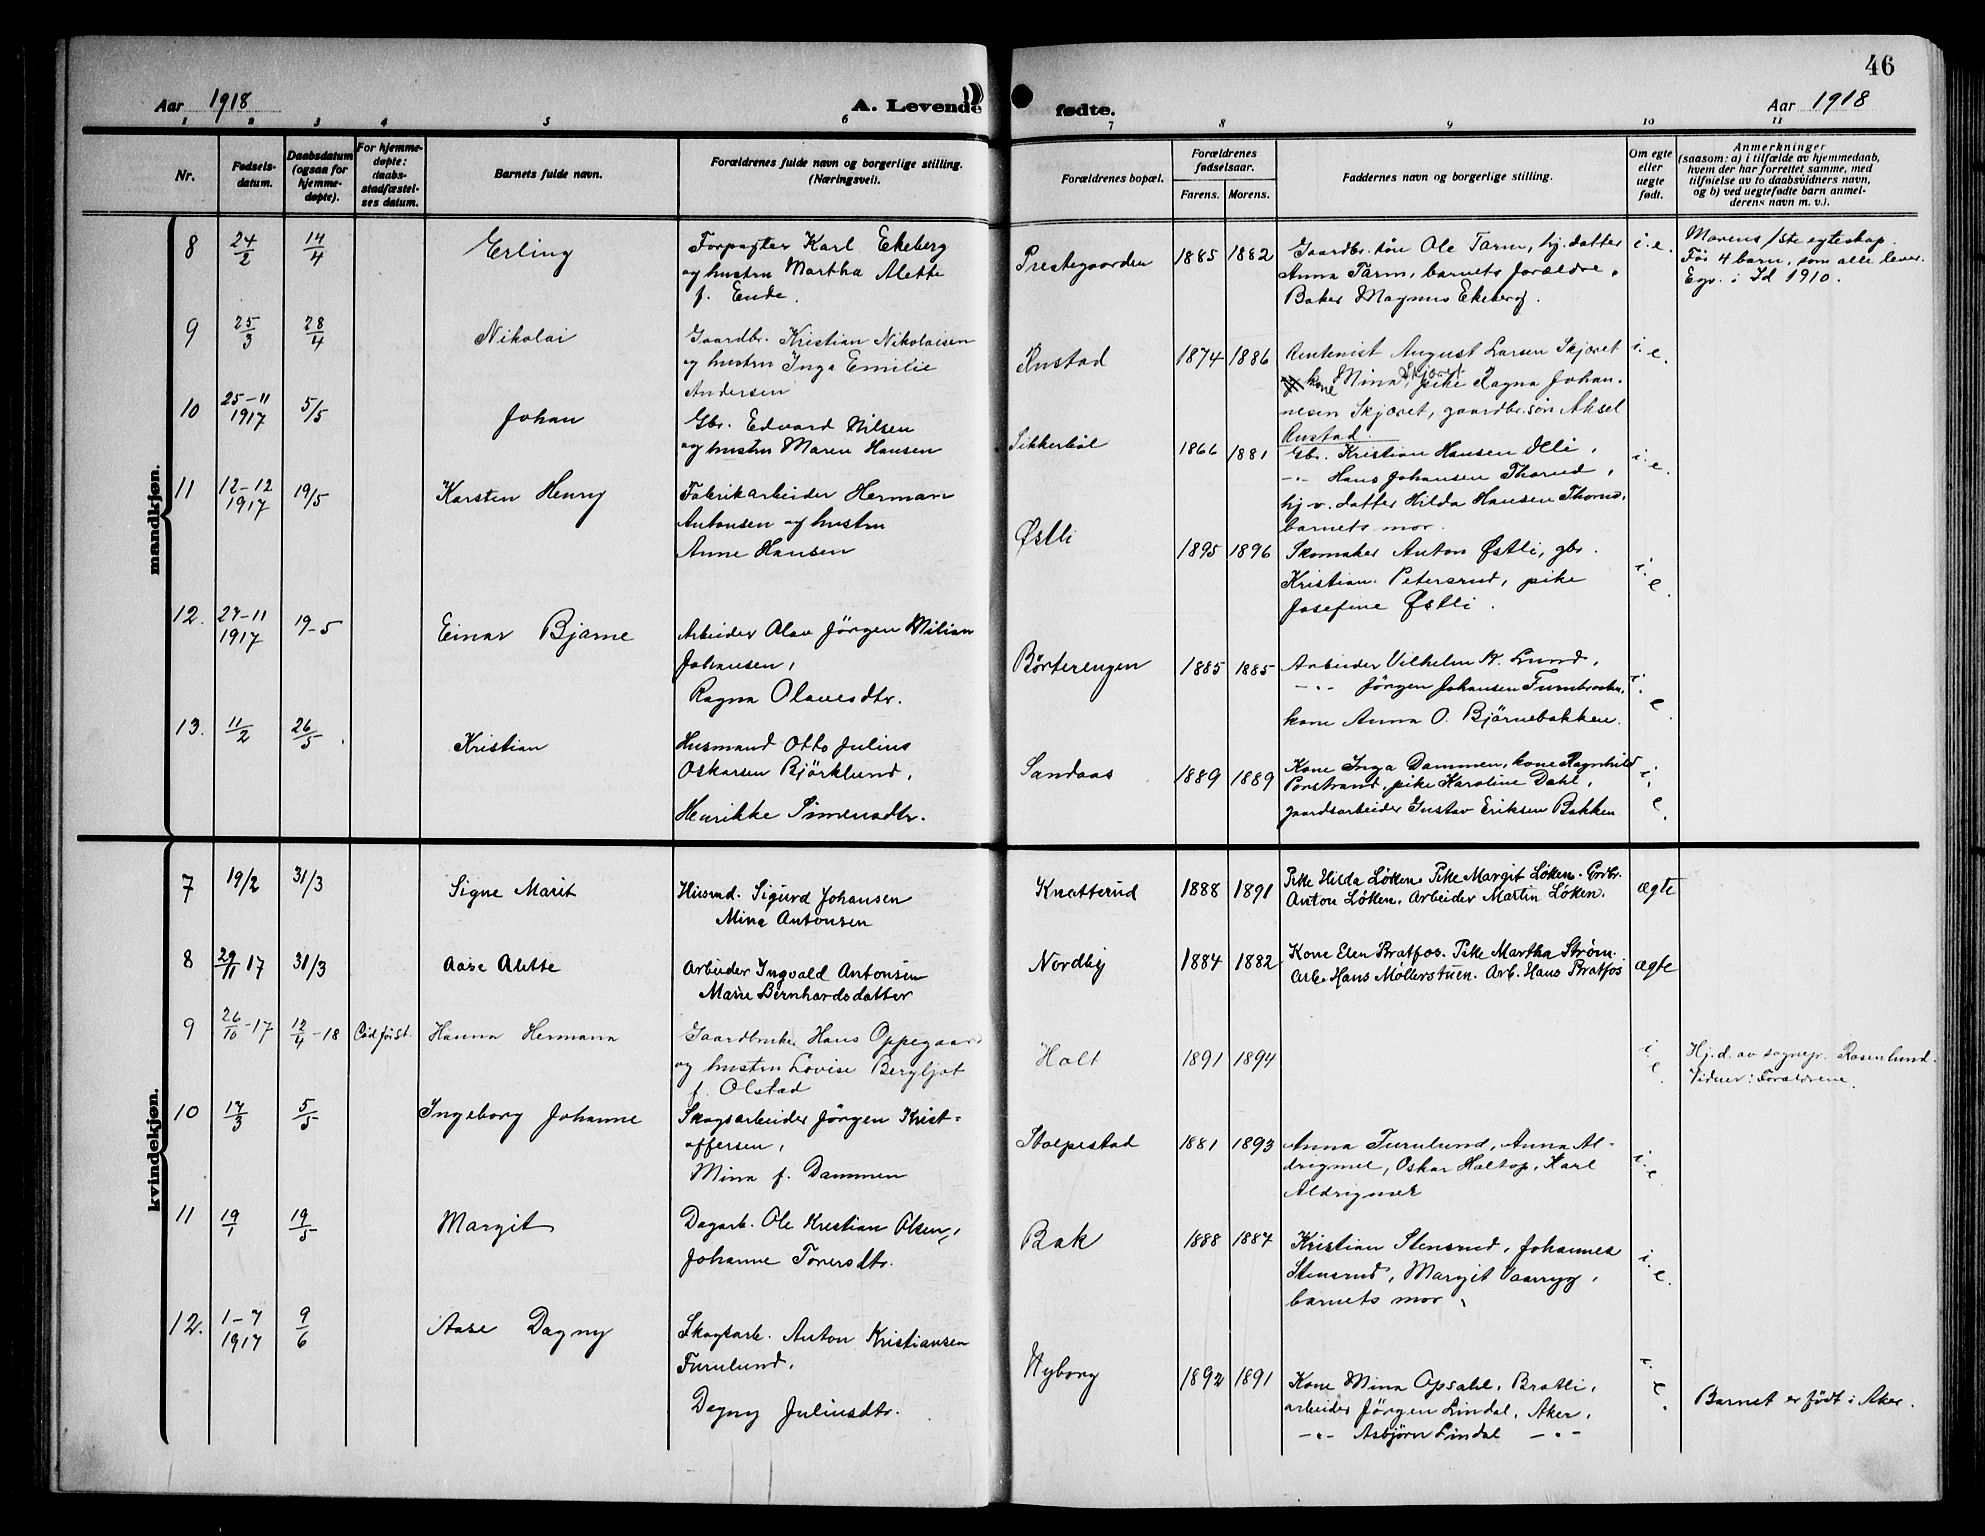 46
Aar 1918
A. Levende fødte.
Aar 1918
1 2 3 4 5 6 7 8 9 10 11
Nr.
Fødsels-
datum.
Daabsdatum
(ogsaa for
hjemme-
døpte).
For hjemme-
døpte:
daabs-
stadfæstel-
ses datum.
Barnets fulde navn.
Forældrenes fulde navn og borgerlige stilling.
(Næringsvei).
Forældrenes bopæl.
Forældrenes
fødselsaar.
Farens. Morens.
Faddernes navn og borgerlige stilling.
Om egte
eller
uegte
født.
Anmerkninger
(saasom: a) i tilfælde av hjemmedaab,
hvem der har forrettet samme, med
tilføielse av to daabsvidners navn,
og b) ved uegtefødte barn anmel-
derens navn m. v.).
mandkjøn.
8 24/2 14/4 Erling
Forpagter Karl Ekeberg
og hustru Martha Alette
f. Ende.
Prestegaarden 1885 1882
Gaardbr. søn Ole Tarm, hj. datter
Anna Tarm, barnets forældre,
Baker Magnus Ekeberg.
i. e.
Morens 1ste egteskap.
Før 4 barn, som alle lever.
Egv. i Id 1910.
9 25/3 28/4 Nikolai
Gaardbr. Kristian Nikolaisen
og hustru Inga Emilie
Andersen
Rustad 1874 1886
Rentenist August Larsen Skjøret
kone Mina Skjøret, pike Ragna Johan-
nesen Skjøret, gaardbr. søn Aksel
Rustad.
i. e.
10 25-11 1917 5/5 Johan
Gbr. Edvard Nilsen
og hustru Maren Hansen
Sikkerbøl 1866 1881
Gbr. Kristian Hansen Oli,
-"- Hans Johansen Thorud,
hj. v. datter Hilda Hansen Thorud,
barnets mor.
i. e.
11 12-12 1917 19/5 Karsten Henry
Fabrikarbeider Herman
Antonsen og hustru
Anne Hansen
Østli 1895 1896
Skomaker Anton Østli, gbr.
Kristian Petersrud, pike
Josefine Østli.
i. e.
12. 27-11 1917 19-5 Einar Bjarne
Arbeider Olav Jörgen Milian
Johansen,
Ragna Olavesdtr.
Börterengen 1885 1885
Arbeider Vilhelm K. Lund,
-"- Jörgen Johansen Furubraaten,
kone Anna O. Björnebakken.
i. e.
13. 11/2 26/5 Kristian
Husmand Otto Julius
Oskarsen Björklund,
Henrikke Simensdtr.
Sandaas 1889 1889
Kone Inga Dammen, kone Ragnhild
Ponstrand, pike Karoline Dahl,
gaardsarbeider Gustav Eriksen Bakken
i. e.
kvindekjøn.
7 19/2 31/3 Signe Marit
Husmd. Sigurd Johansen
Mina Antonsen
Knatterud 1888 1891
Pike Hilda Løken. Pike Margit Løken. Gorbr.
Anton Løken. Arbeider Martin Løken.
ægte
8 29/11 17 31/3 Aase Alette
Arbeider Ingvald Antonsen
Marie Bernhardsdatter
Nordby 1884 1882
Kone Elen Bratfos. Pike Martha Strøm.
Arb. Hans Møllerstuen. Arb. Hans Bratfos
ægte
9 26/10-17 12/4-18 Hanna Hermana
Gaardbruker Hans Oppegaard
og hustru Lovise Bergljot
f. Olstad
Holt 1891 1894
i. e.
Hj. d. av sognepr. Rosenlund.
Vidner: Forældrene.
10 17/3 5/5 Ingeborg Johanne
Skogsarbeider Jörgen Krist-
offersen,
Mina f. Dammen
Stolpestad 1881 1893
Anna Furulund, Anna Al-
drigmer, Oskar Holtop, Karl
Aldrigmer
i. e.
11 19/1 19/5 Margit
Dagarb. Ole Kristian Olsen,
Johanne Toversdtr.
Bak 1888 1887
Kristian Stensrud, Johannes
Stensrud, Margit Vaarryg,
barnets mor.
i. e.
12. 1-7 1917 9/6 Aase Dagny
Skogsarb. Anton Kristiansen
Furulund,
Dagny Juliusdtr.
Nyborg 1892 1891
Kone Mina Opsahl, Bratli,
arbeider Jörgen Lindal, Aker,
-"- Asbjörn Lindal -"-
i. e.
Barnet er født i Aker.